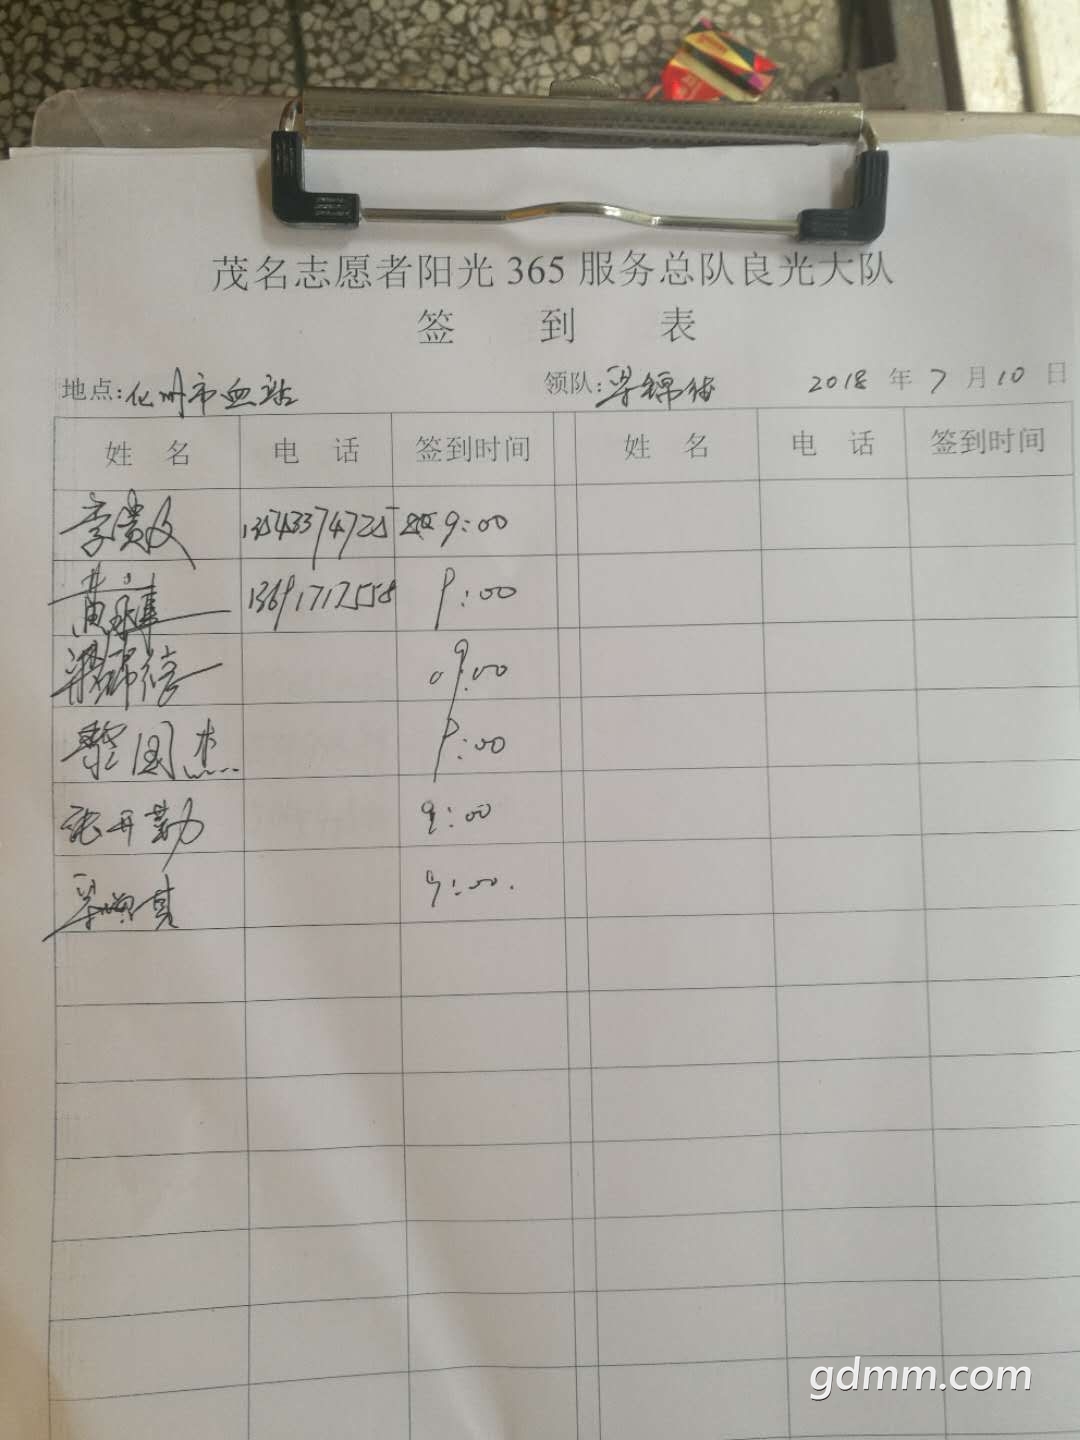 茂名志愿者阳光365服务总队良光大队
签 到 表
地点:化州市血站 领队:梁锦 2018年7月10日
姓 名 电 话 签到时间 姓 名 电 话 签到时间
李贵 13543374725 9:00
黄 13691717558 9:00
梁锦 09:00
黎国杰 9:00
张开勤 9:00
梁 9:00.
gdmm.com